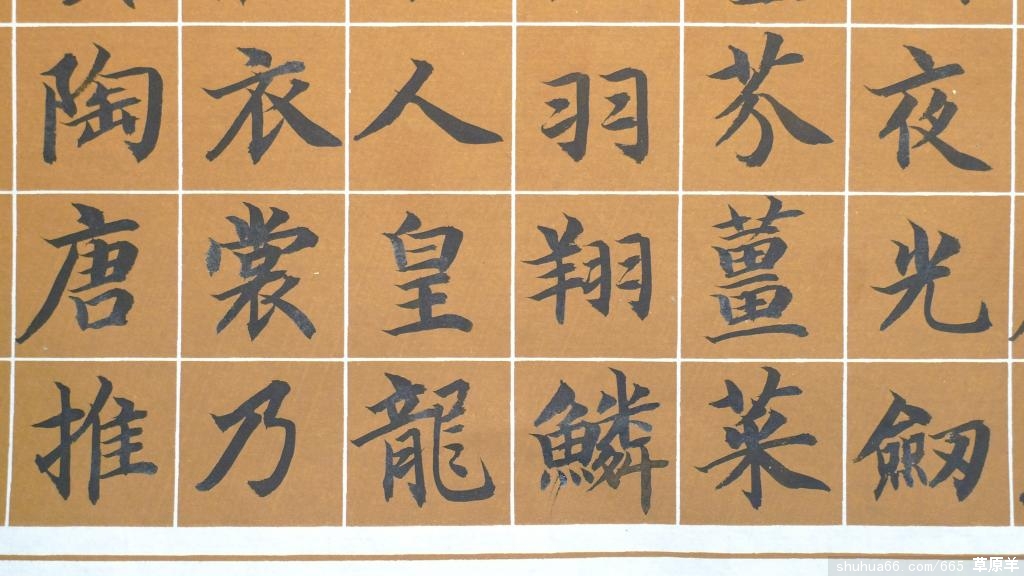 夜光劒
芥薑菜
羽翔鱗
人皇龍
衣裳乃
陶唐推
shuhua66.com/665 草原羊